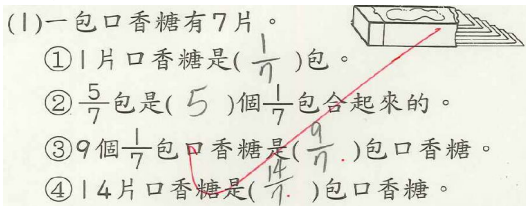 (1)一包口香糖有7片。
①1片口香糖是( 1/7 )包。
②5/7包是( 5 )個1/7包合起來的。
③9個1/7包口香糖是( 9/7 )包口香糖。
④14片口香糖是( 14/7 )包口香糖。